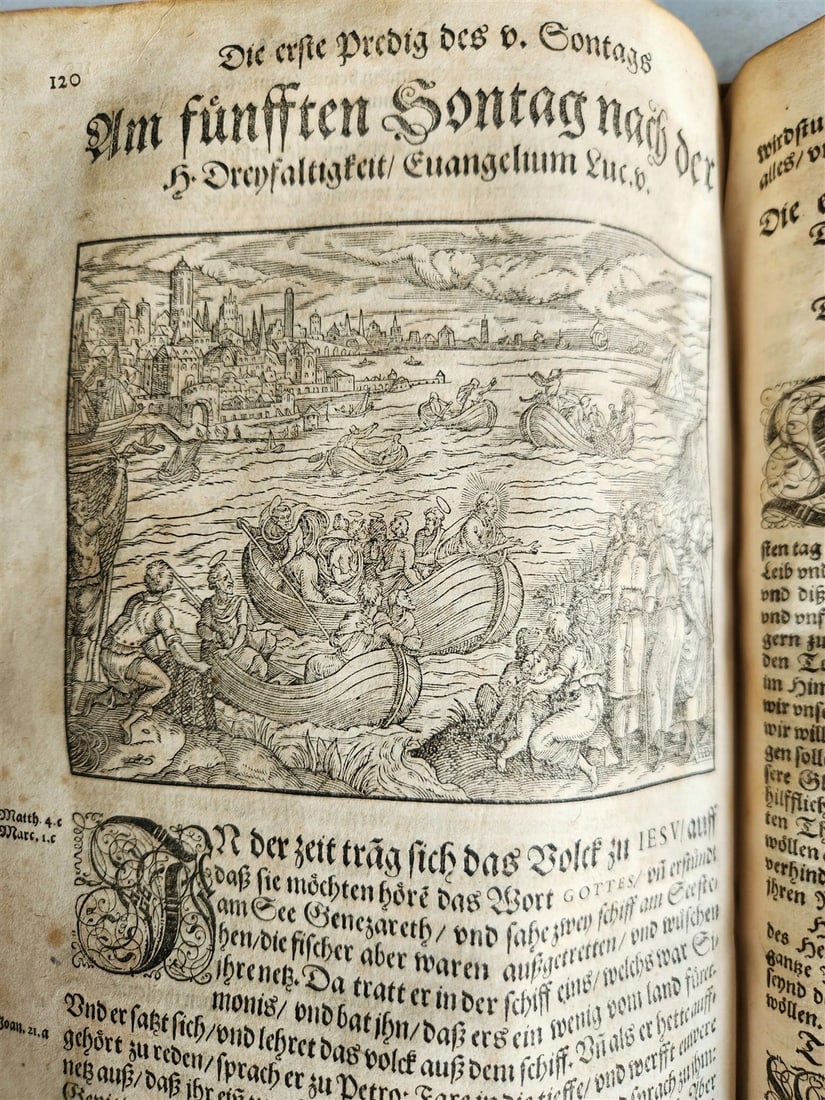 120
Die erste Predig des v. Sontags
Am fünfften Sontag nach der
H. Dreyfaltigkeit/ Euangelium Luc. v.
Matth. 4. c
Marc. 1. c
IN der zeit träg sich das Volck zu IESV/ auff
daß sie möchten hörē das Wort GOTTES/ vñ er stůnd
am See Genezareth/ vnd sahe zwey schiff am See ste-
hen/ die fischer aber waren außgetretten/ vnd wůschen
jhre netz. Da tratt er in der schiff eins/ welchs war Si-
monis/ vnd bat jhn/ daß ers ein wenig vom land füret.
Joan. 21. a
Vnd er satzt sich/ vnd lehret das volck auß dem schiff. Vñ als er hette auff-
gehört zu reden/ sprach er zu Petro: Fare in die tieffe/ vnd werfft euwere
netz auß/ daß jhr eiñ
sprach zu jhm:
Aber
wird
alles/
Die
sten tag
Leib vnd
vnd diß
vnd
gern zu
den
im
wir
wir will
gen
sere
hilfflich
ten
wöllen
verhind
jhren
des He
gantze
seynd
wöllen.